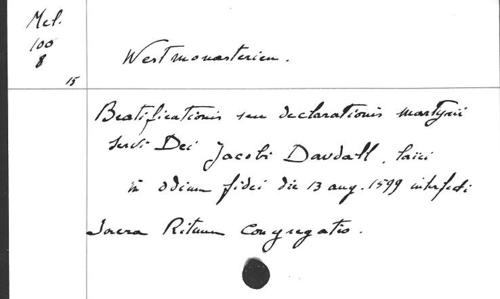 Mel.
100
8
15
Westmonasterien.
Beatificationis seu declarationis martyrii
servi Dei Jacobi Dowdall, laici
in odium fidei die 13 aug. 1599 interfecti
Sacra Rituum Congregatio.